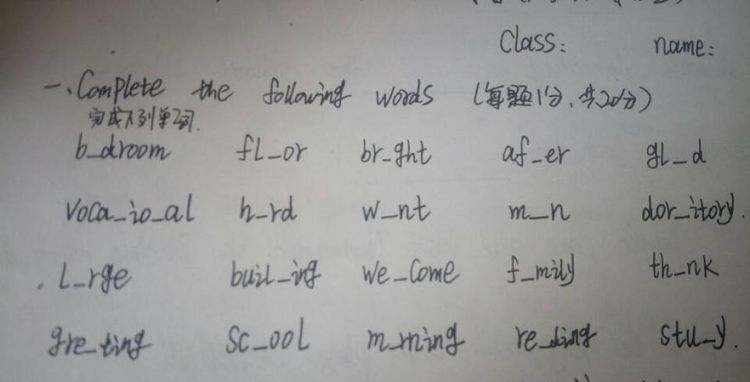 Class: name:
一、Complete the following words (每题1分,共20分)
完成下列单词.
b_droom fl_or br_ght af_er gl_d
Voca_io_al h_rd w_nt m_n dor_itory.
L_rge buil_ing we_come f_mily th_nk
gre_ting Sc_ool m_rning re_ding stu_y.